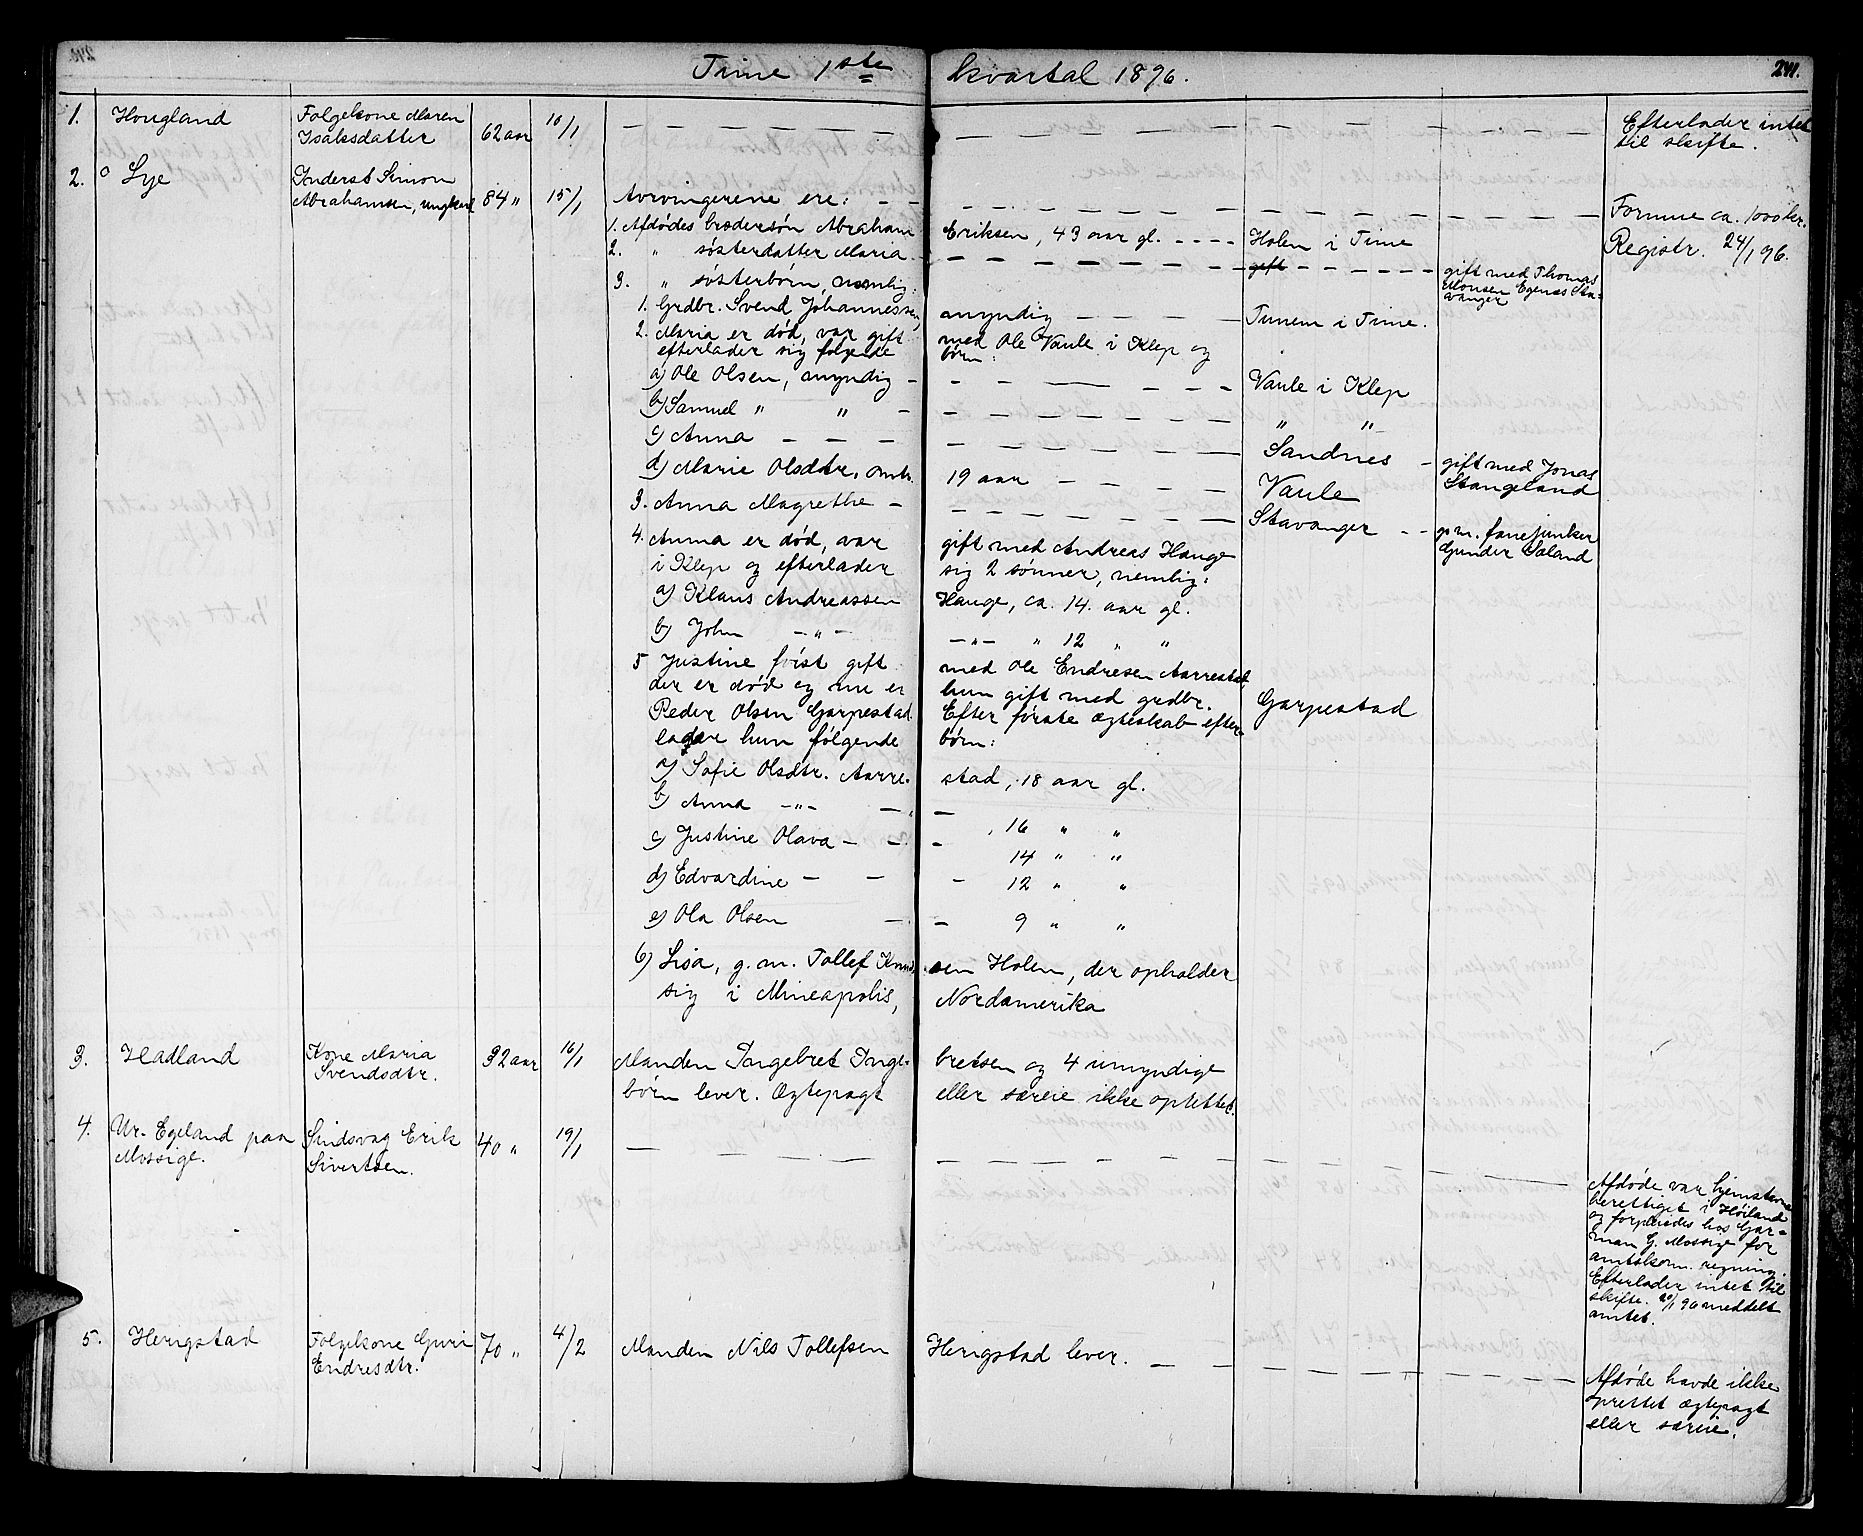 Time 1ste kvartal 1896. 241.
1. Hougland Folgekone Maren 62 aar 10/1 Efterlader intet
Isaksdatter til skifte.
2. o Lye Inderst Simon
Abrahamsen, ungkarl 84 " 15/1 Arvingerene ere: Formue ca. 1000 kr.
1. Afdødes brodersøn Abraham Eriksen, 43 aar gl. Holen i Time Registr. 24/1 96.
2. " søsterdatter Maria gift gift med Thomas
Monsen Egenæs Sta-
vanger
3. " søsterbørn, nemlig:
1. Grdbr. Svend Johannessen, myndig Tunem i Time.
2. Maria er død, var gift med Ole Vaule i Klep og
efterlader sig følgende børn:
a) Ole Olsen, myndig Vaule i Klep
b) Samuel " " " "
c) Anna Sandnes gift med Jonas
Stangeland
d) Marie Olsdtr. omtr. 19 aar Vaule
3. Anna Magrethe Stavanger g. m. fanejunker
Gunder Saland
4. Anna er død, var gift med Andreas Hauge
i Klep og efterlader sig 2 sønner, nemlig:
a) Klaus Andreassen Hauge, ca. 14 aar gl.
b) John -"- -"- " 12 " "
5 Justine først gift med Ole Endresen Aarrestad,
der er død og nu er hun gift med grdbr.
Peder Olsen Garpestad. Efter første ægteskab efter- Garpestad
lader hun følgende børn:
a) Sofie Olsdtr. Aarre- stad, 18 aar gl.
b) Anna -"- - - , 16 " "
c) Justine Olava - - - 14 " "
d) Edvardine - - - 12 " "
e) Ola Olsen - - 9 " "
6) Lisa, g. m. Tollef Knud- sen Holen, der opholder
sig i Mineapolis, Nordamerika
3. Hadland Kone Maria 32 aar 16/1 Manden Ingebret Inge- bretsen og 4 umyndige
Svendsdtr. børn lever. Ægtepagt eller særeie ikke oprettet.
4. Ur. Egeland paa Sindsvag Erik 40 " 19/1
Mossige. Sivertsen.
Afdøde var hjemstavns
berettiget i Høiland
og forpleiedes hos Gar-
man G. Mossige for
amtskom. regning.
Efterlader intet til
skifte. 20/1 96 meddelt
amtet.
5. Herigstad Folgekone Guri 70 " 4/2 Manden Nils Tollefsen Herigstad lever.
Endresdtr.
Afdøde havde ikke
oprettet ægtepagt
eller særeie.